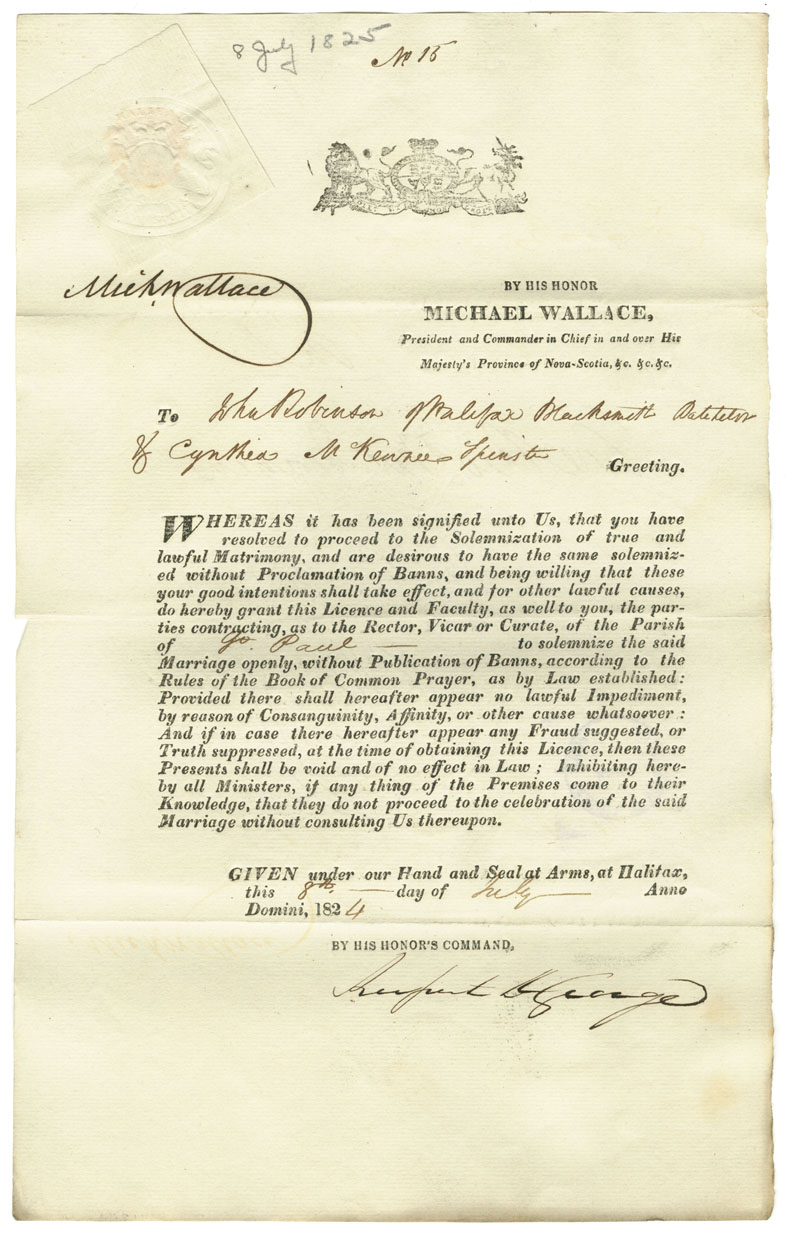 8 July 1825
No 15
Mich. Wallace
BY HIS HONOR
MICHAEL WALLACE,
President and Commander in Chief in and over His
Majesty's Province of Nova-Scotia, &c. &c. &c.
To John Robinson of Halifax Blacksmith Batchelor
& Cynthea McKennee Spinster
Greeting.
WHEREAS it has been signified unto Us, that you have
resolved to proceed to the Solemnization of true and
lawful Matrimony, and are desirous to have the same solemniz-
ed without Proclamation of Banns, and being willing that these
your good intentions shall take effect, and for other lawful causes,
do hereby grant this Licence and Faculty, as well to you, the par-
ties contracting, as to the Rector, Vicar or Curate, of the Parish
of St. Paul to solemnize the said
Marriage openly, without Publication of Banns, according to the
Rules of the Book of Common Prayer, as by Law established:
Provided there shall hereafter appear no lawful Impediment,
by reason of Consanguinity, Affinity, or other cause whatsoever:
And if in case there hereafter appear any Fraud suggested, or
Truth suppressed, at the time of obtaining this Licence, then these
Presents shall be void and of no effect in Law; Inhibiting here-
by all Ministers, if any thing of the Premises come to their
Knowledge, that they do not proceed to the celebration of the said
Marriage without consulting Us thereupon.
GIVEN under our Hand and Seal at Arms, at Halifax,
this 8th day of July Anno
Domini, 1824
BY HIS HONOR'S COMMAND,
Rupert D George